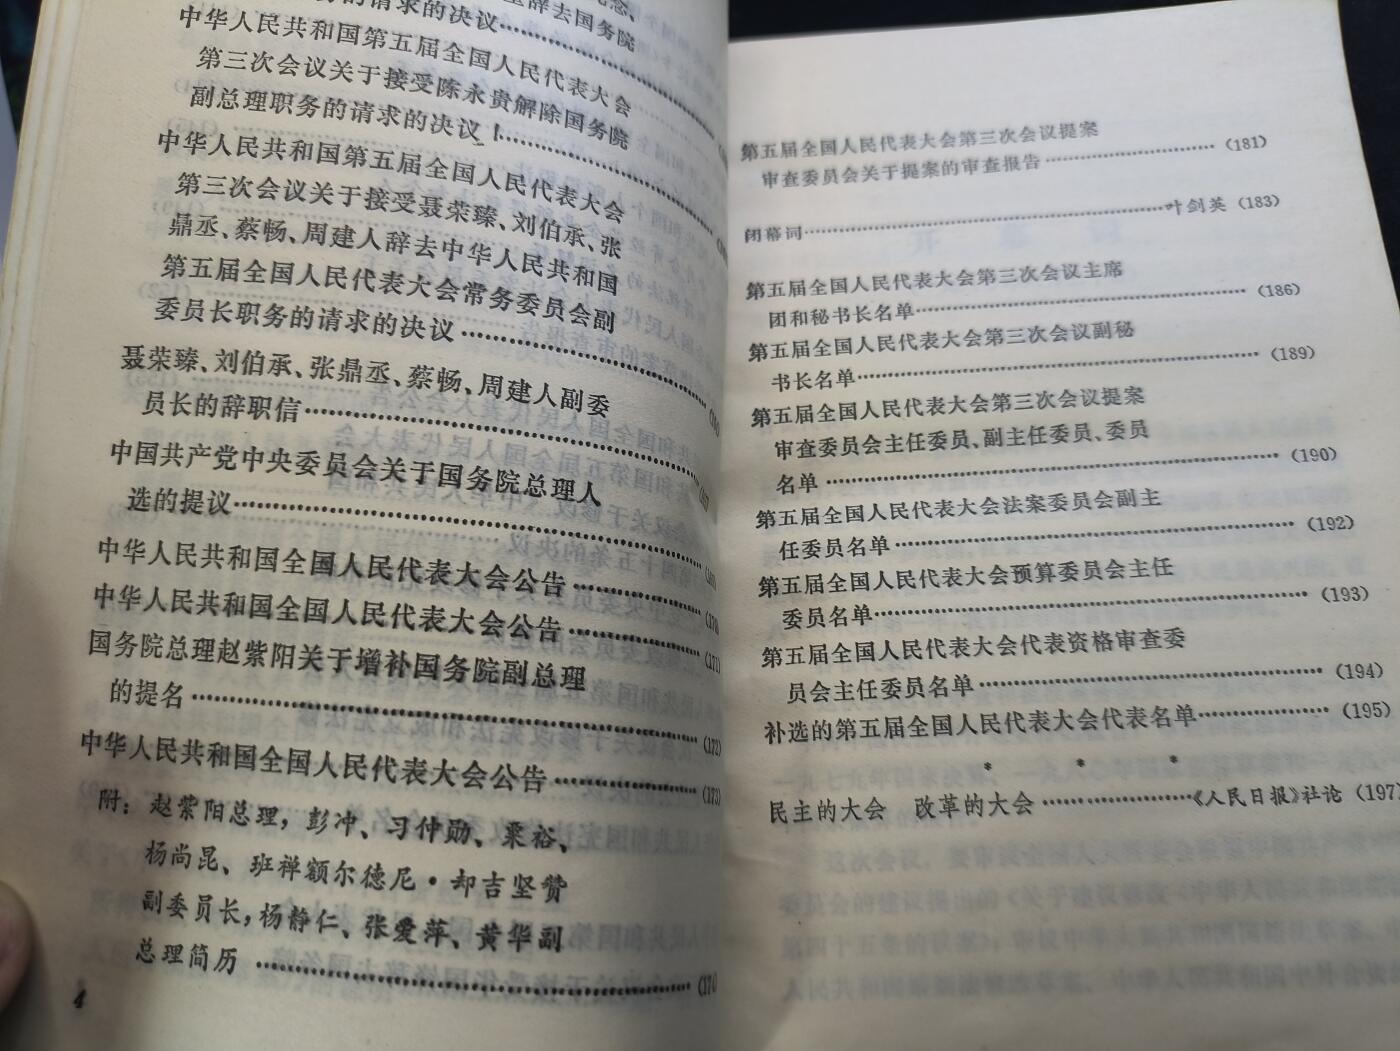 务的请求的决议
辞去国务院
中华人民共和国第五届全国人民代表大会
第三次会议关于接受陈永贵解除国务院
副总理职务的请求的决议
中华人民共和国第五届全国人民代表大会
第三次会议关于接受聂荣臻、刘伯承、张
鼎丞、蔡畅、周建人辞去中华人民共和国
第五届全国人民代表大会常务委员会副
委员长职务的请求的决议
聂荣臻、刘伯承、张鼎丞、蔡畅、周建人副委
员长的辞职信
中国共产党中央委员会关于国务院总理人
选的提议
中华人民共和国全国人民代表大会公告
中华人民共和国全国人民代表大会公告 (171)
国务院总理赵紫阳关于增补国务院副总理
的提名 (172)
中华人民共和国全国人民代表大会公告 (173)
附：赵紫阳总理，彭冲、习仲勋、粟裕、
杨尚昆、班禅额尔德尼·却吉坚赞
副委员长，杨静仁、张爱萍、黄华副
总理简历
4
第五届全国人民代表大会第三次会议提案
审查委员会关于提案的审查报告 (181)
闭幕词 叶剑英 (183)
第五届全国人民代表大会第三次会议主席
团和秘书长名单 (186)
第五届全国人民代表大会第三次会议副秘
书长名单 (189)
第五届全国人民代表大会第三次会议提案
审查委员会主任委员、副主任委员、委员
名单 (190)
第五届全国人民代表大会法案委员会副主
任委员名单 (192)
第五届全国人民代表大会预算委员会主任
委员名单 (193)
第五届全国人民代表大会代表资格审查委
员会主任委员名单 (194)
补选的第五届全国人民代表大会代表名单 (195)
* * *
民主的大会 改革的大会 《人民日报》社论 (197)